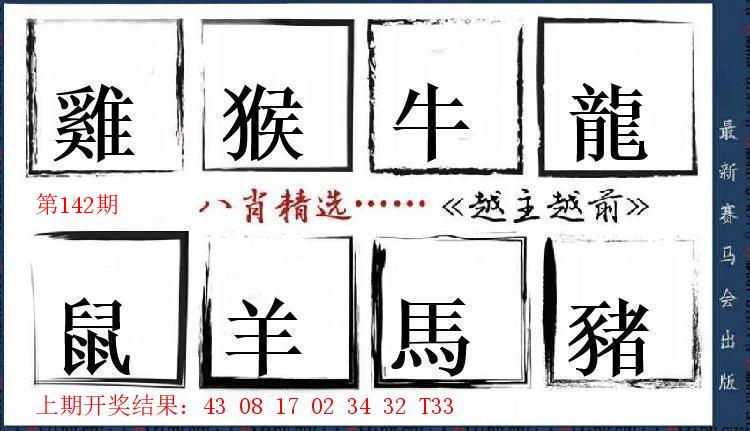 雞 猴 牛 龍
第142期 八肖精选······《越主越前》
鼠 羊 馬 豬
上期开奖结果：43 08 17 02 34 32 T33
最新赛马会出版